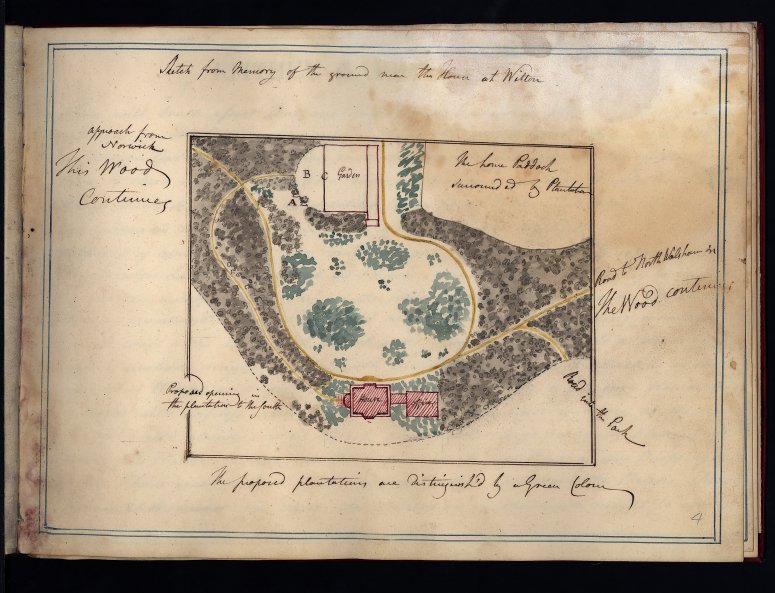 Sketch from Memory of the ground near the House at Witton
approach from
Norwich
This Wood
Continues
B C Garden
A
The home Paddock
surrounded by Plantation
Road to North Walsham &c
The Wood continues
Proposed opening in
the plantation to the South
House
Road into the Park
The proposed plantations are distinguish'd by a Green Colour
4